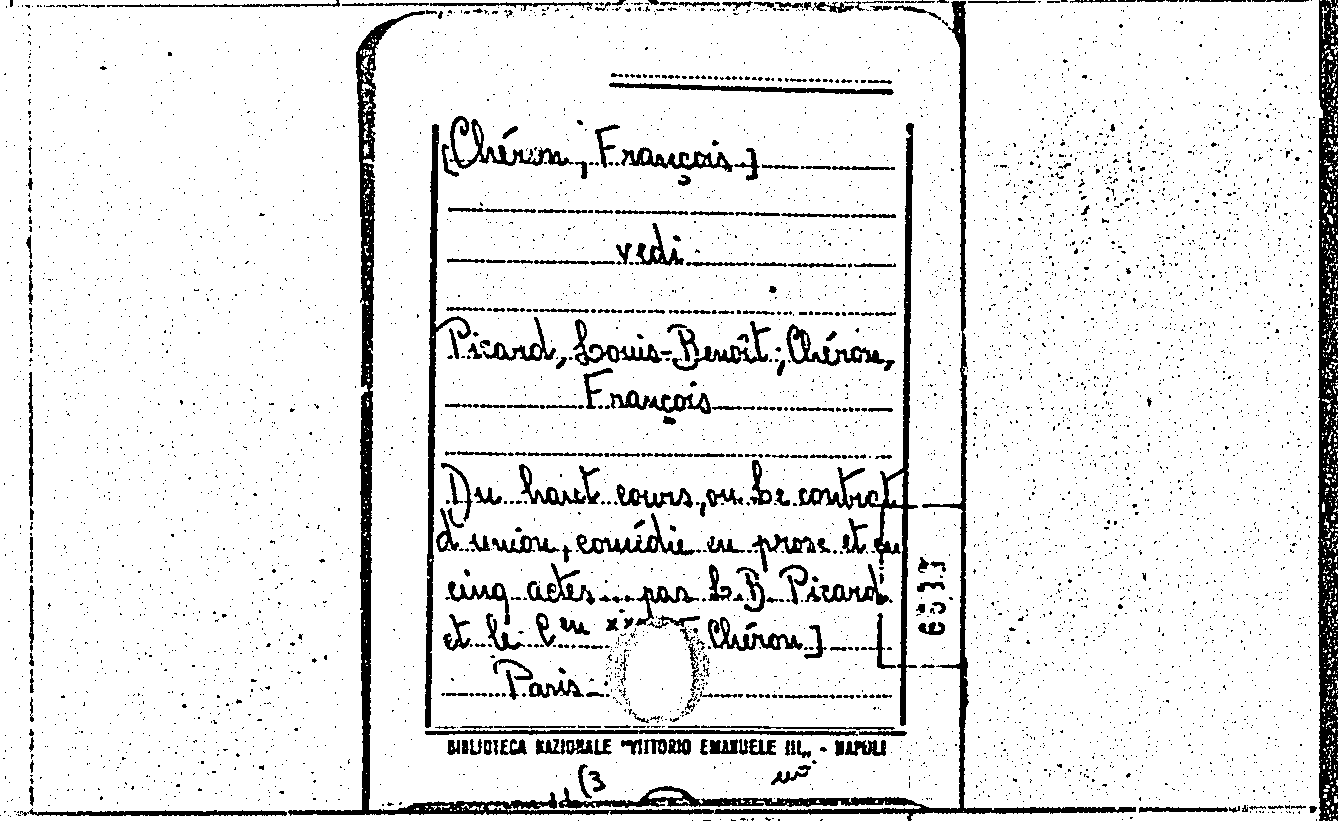 [Chéron, François]
vedi
Picard, Louis-Benoît; Chéron,
François
Du haut cours, ou Le contrat
d'union, comédie en prose et en
cinq actes... par L. B. Picard
et le C.en xxx Chéron]
Paris
BIBLIOTECA NAZIONALE "VITTORIO EMANUELE III" - NAPOLI
(3